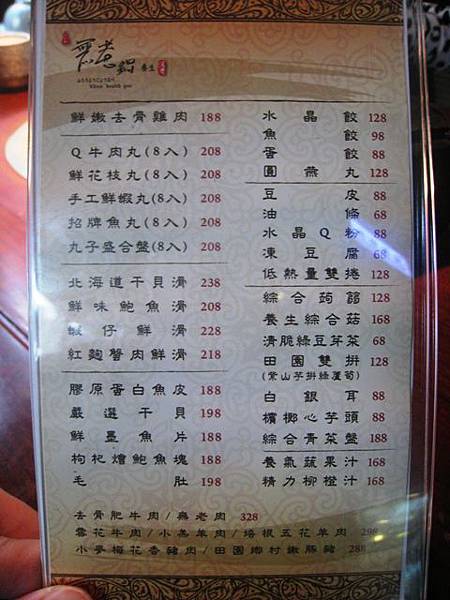 無老鍋 養生
鮮嫩去骨雞肉 188
Q牛肉丸(8入) 208
鮮花枝丸(8入) 208
手工鮮蝦丸(8入) 208
招牌魚丸(8入) 208
丸子盛合盤(8入) 208
北海道干貝滑 238
鮮味鮑魚滑 208
蚵仔鮮滑 228
紅麴蟹肉鮮滑 218
膠原蛋白魚皮 188
嚴選干貝 198
鮮墨魚片 188
枸杞燴鮑魚塊 188
毛肚 198
水晶餃 128
魚餃 98
蛋餃 88
圓燕丸 128
豆皮 88
油條 68
水晶Q粉 88
凍豆腐 68
低熱量雙捲 128
綜合蒟蒻 128
養生綜合菇 168
清脆綠豆芽菜 68
田園雙拼 128
(紫山芋拼綠蘆筍)
白銀耳 88
檳榔心芋頭 88
綜合青菜盤 188
養氣蔬果汁 168
精力柳橙汁 168
去骨肥牛肉/無老肉 328
雪花牛肉/小羔羊肉/培根五花羊肉 298
小亨梅花香豬肉/田園鄉村嫩豚豬 288